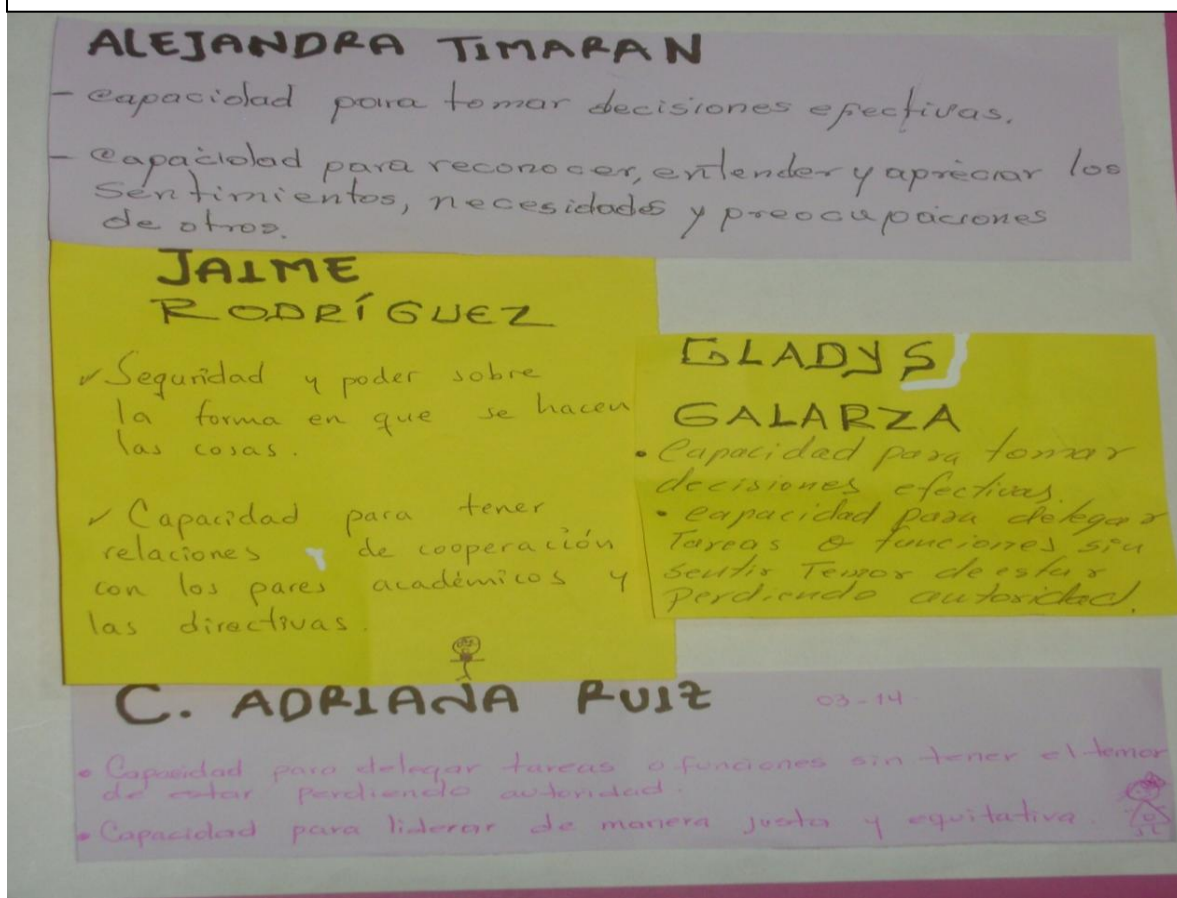 ALEJANDRA TIMARAN
- capacidad para tomar decisiones efectivas.
- capacidad para reconocer, entender y apreciar los
sentimientos, necesidades y preocupaciones
de otros.
JAIME
RODRÍGUEZ
✓ Seguridad y poder sobre
la forma en que se hacen
las cosas.
✓ Capacidad para tener
relaciones de cooperación
con los pares académicos y
las directivas.
GLADYS
GALARZA
• Capacidad para tomar
decisiones efectivas.
• capacidad para delegar
Tareas o funciones sin
sentir Temor de estar
perdiendo autoridad.
C. ADRIANA RUIZ 03-14
• Capacidad para delegar tareas o funciones sin tener el temor
de estar perdiendo autoridad.
• Capacidad para liderar de manera justa y equitativa.